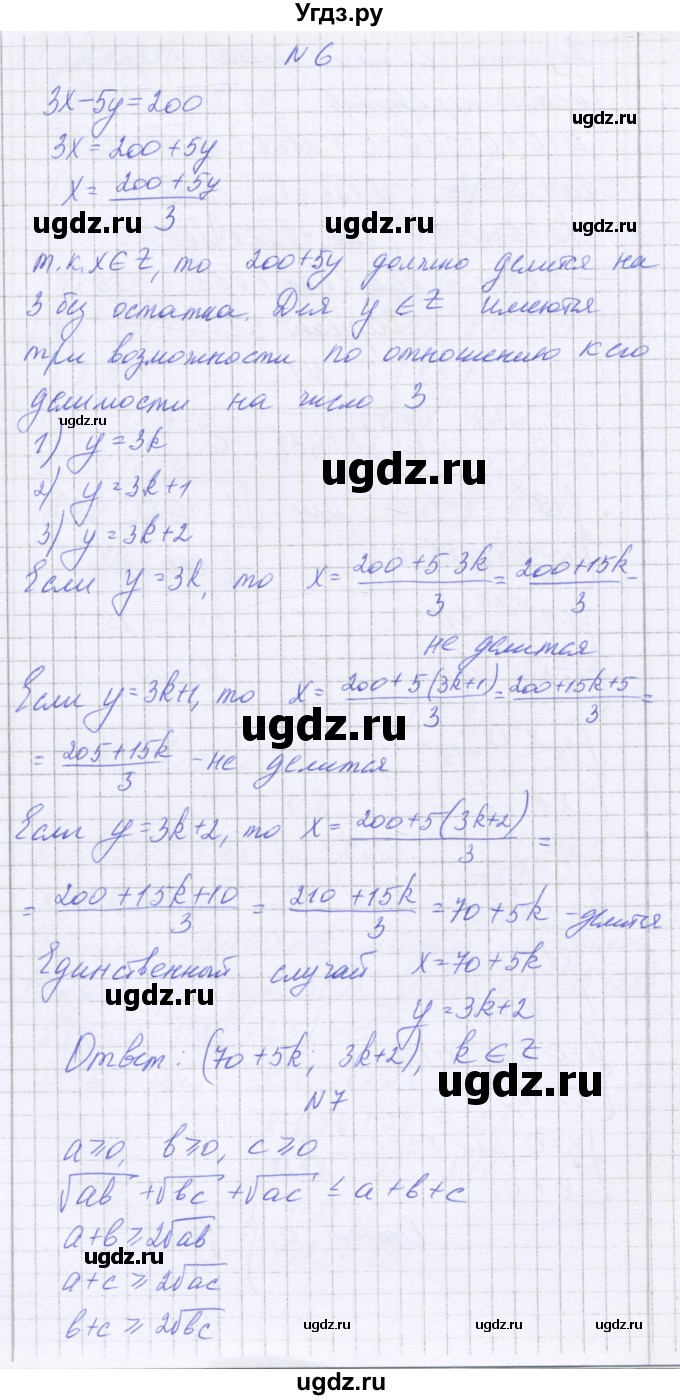 Угдз.ру
N 6
3x-5y=200
ugdz.ru
3x=200+5y
x= (200+5y)/3
ugdz.ru ugdz.ru ugdz.ru
т.к. x∈Z, то 200+5y должно делится на
3 без остатка. Для y∈Z имеются
три возможности по отношению к его
делимости на число 3
ugdz.ru
1) y=3k
ugdz.ru
2) y=3k+1
3) y=3k+2
Если y=3k, то x= (200+5·3k)/3 = (200+15k)/3 -
не делится
Если y=3k+1, то x= (200+5(3k+1))/3 = (200+15k+5)/3 =
ugdz.ru
= (205+15k)/3 - не делится
Если y=3k+2, то x= (200+5(3k+2))/3 =
= (200+15k+10)/3 = (210+15k)/3 = 70+5k - делится
Единственный случай x=70+5k
ugdz.ru
y=3k+2
Ответ: (70+5k; 3k+2), k∈Z
ugdz.ru
N 7
a⩾0, в⩾0, c⩾0
√aв + √вc + √ac ≤ a+в+c
a+в ⩾ 2√aв
ugdz.ru
a+c ⩾ 2√ac
в+c ⩾ 2√вc
ugdz.ru ugdz.ru
ugdz.ru